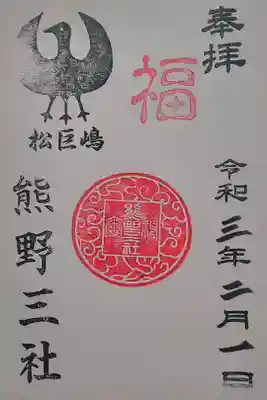 奉拝
福
令和三年二月一日
松巨嶋
熊野三社